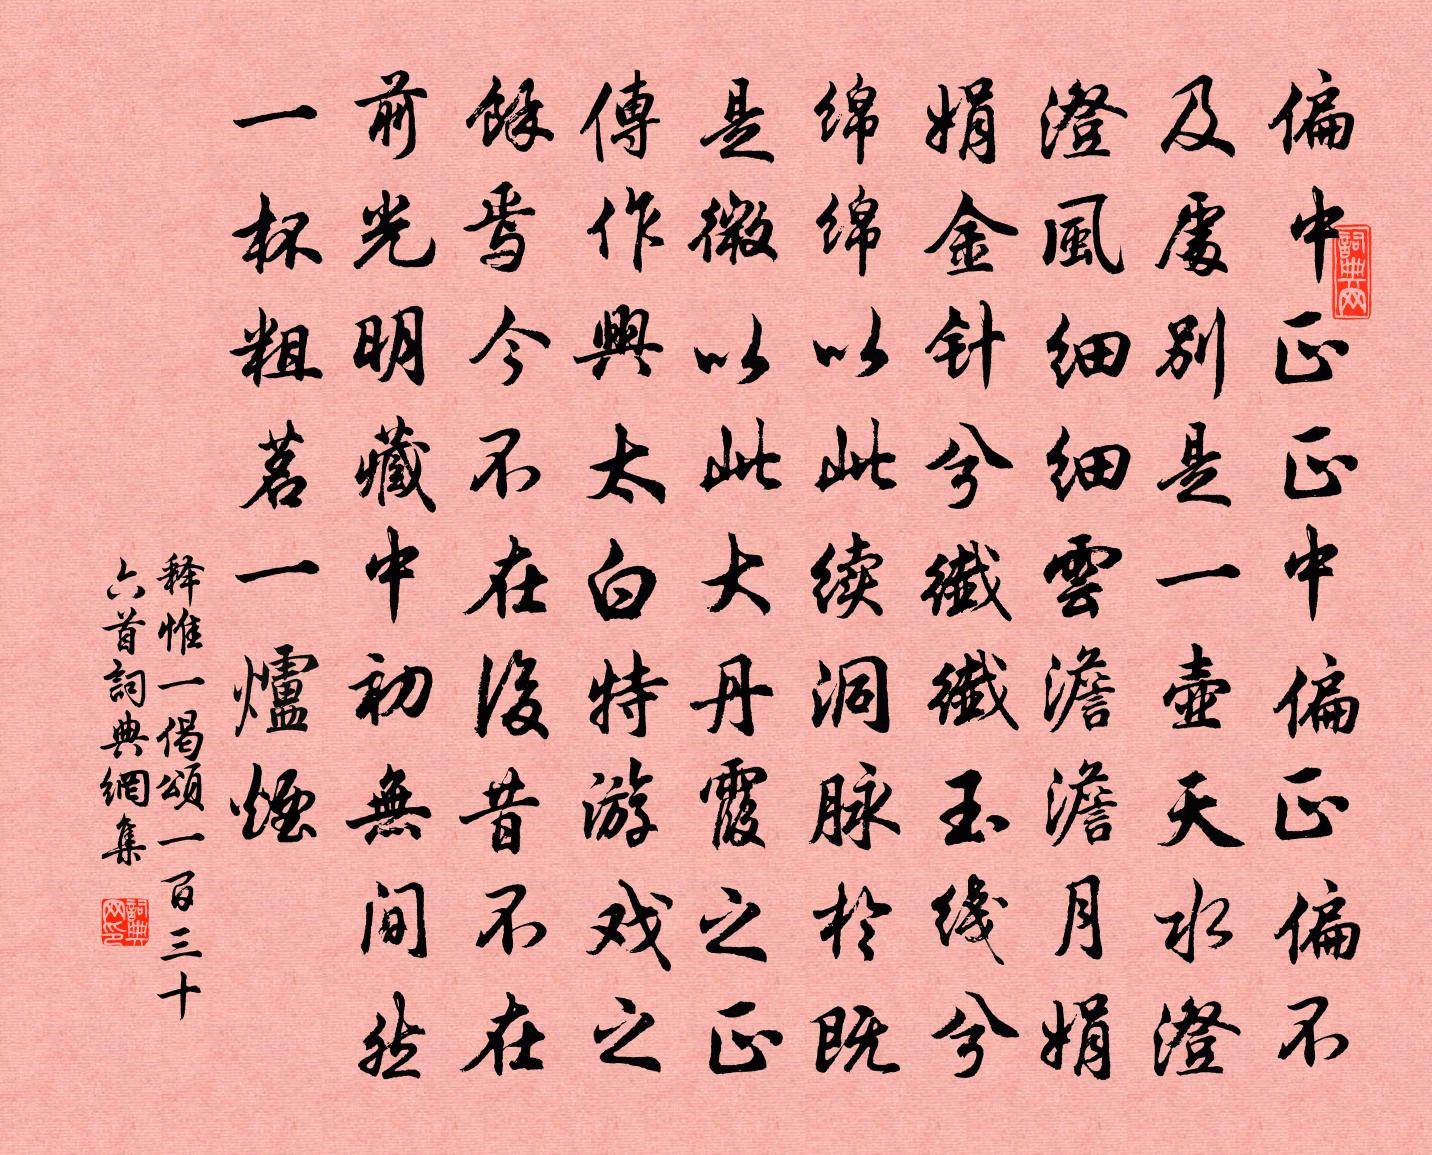 偏中正正中偏正偏不
及處別是一壺天水澄
澄風细细雲澹澹月娟
娟金针兮纖纖玉线兮
绵绵以此续洞脉於既
是微以此大丹霞之正
傳作興太白特游戏之
餘焉今不在後昔不在
前光明藏中初無间然
一杯粗茗一爐煙
释惟一偈頌一百三十
六首詞典網集
詞典网
詞典网印